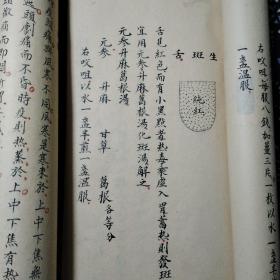 右㕮咀每服八錢加薑三片
枚以水
一盞溫服
生斑舌
純紅
舌見紅色而有小黑點者熱毒乘虛入胃蓄熱則發斑
宜用元參升麻葛根湯化斑湯解之
元參升麻葛根湯
元參 升麻 甘草 葛根各等分
右㕮咀以水一盞半煎一盞溫服
上中下焦有熱
風寒是寒束於上中下無
頭劇痛而不省時疫則熱蒸於上